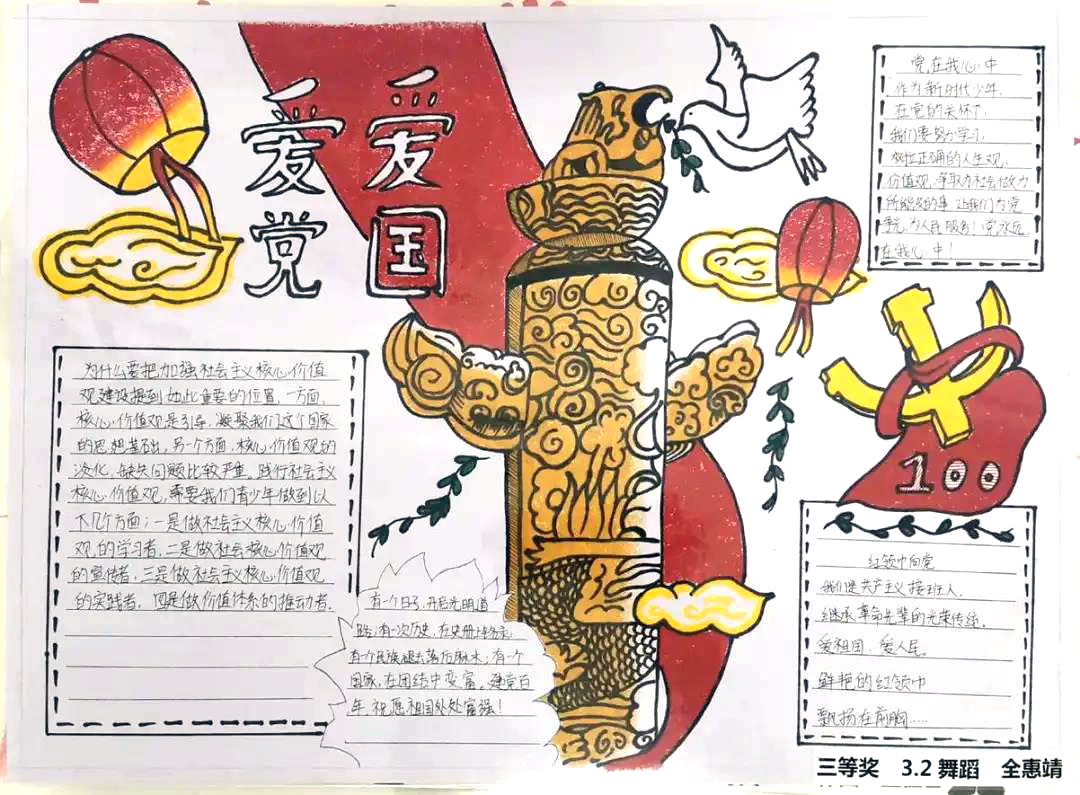 爱党
爱国
党在我心中
作为新时代少年,
在党的关怀下,
我们要努力学习,
树立正确的人生观,
价值观,争取为社会做力
所能及的事,让我们为党
争光,为人民服务!党永远
在我心中!
100
为什么要把加强社会主义核心价值
观建设提到如此重要的位置,一方面,
核心价值观是引导,凝聚我们这个国家
的思想基础,另一个方面,核心价值观的
淡化,缺失问题比较严重。践行社会主义
核心价值观,需要我们青少年做到以
下几个方面:一是做社会主义核心价值
观的学习者,二是做社会核心价值观
的宣传者,三是做社会主义核心价值观
的实践者,四是做价值体系的推动者.
有一个日子,开启光明道
路;有一次历史,在史册上
有一个民族,褪去落后麻木;有一个
国家,在团结中变富。建党百
年,祝愿祖国处处富强!
红领巾向党
我们是共产主义接班人,
继承革命先辈的光荣传统。
爱祖国、爱人民。
鲜艳的红领巾
飘扬在前胸.....
三等奖 3.2 舞蹈 全惠靖